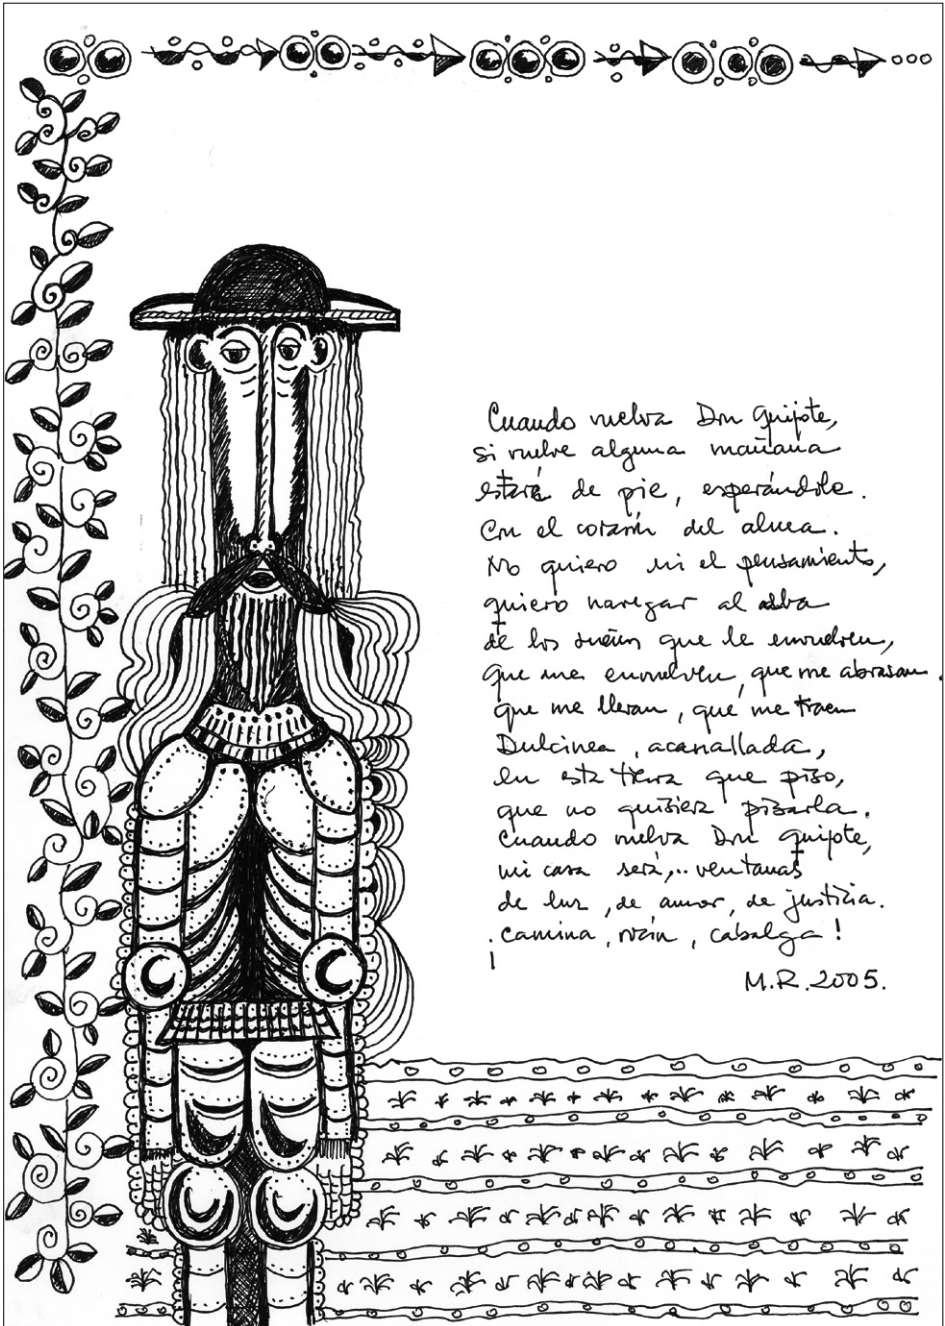 Cuando vuelva Don Quijote,
si vuelve alguna mañana
estaré de pie, esperándole.
Con el corazón del alma.
No quiero ni el pensamiento,
quiero navegar al alba
de los sueños que le envuelven,
que me envuelven, que me abrasan.
que me llevan, que me traen
Dulcinea, acanallada,
en esta tierra que piso,
que no quisiera pisarla.
Cuando vuelva Don Quijote,
mi casa será,.. ventanas
de luz, de amor, de justicia.
¡camina, cabalga!
M.R. 2005.